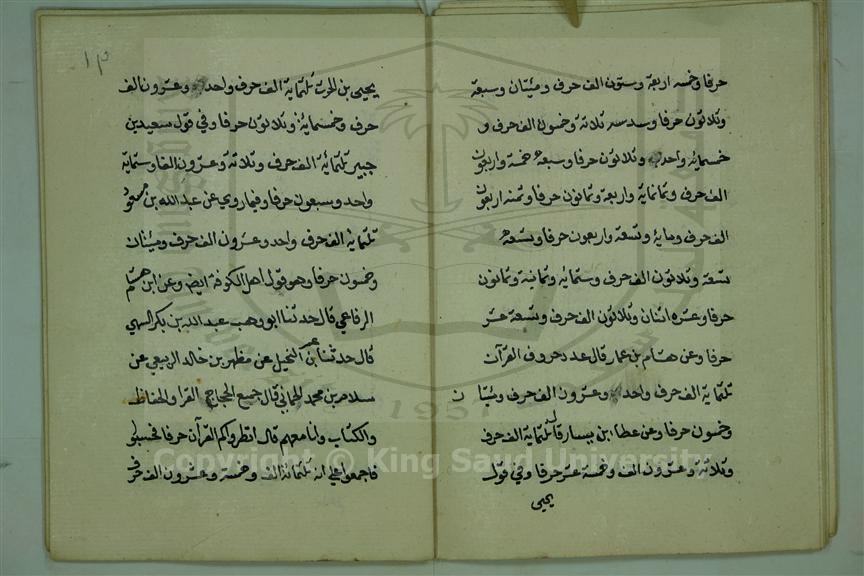 حرفا وخمسه اربعة وستون الف حرف ومئيتان وسبعة
وثلاثون حرفا وسدسه ثلاثة وخمسون الف حرف و
خمسمائة واحدى وثلاثون حرفا وسبعه خمسة واربعون
الف حرف وثمانماية واربعة وثمانون حرفا وثمنه اربعون
الف حرف وماية وتسعة واربعون حرفا وتسعه
تسعة وثلاثون الف حرف وستماية وثمانية وثمانون
حرفا وعشره اثنان وثلاثون الف حرف وتسعة عشر
حرفا وعن هشام بن عمار قال عدد حروف القرآن
ثلثماية الف حرف واحدى وعشرون الف حرف ومئيتان
وخمسون حرفا وعن عطا ابن يسار قال ثلثماية الف حرف
وثلاثة وعشرون الف وخمسة عشر حرفا وفي قول
يحيى
١٣
يحيى بن الحرث ثلثماية الف حرف واحدى وعشرون الف
حرف وخمسماية وثلاثون حرفا وفي قول سعيد بن
جبير ثلثمائة الف حرف وثلاثة وعشرون الفا وستماية
واحد وسبعون حرفا وفيما روي عن عبد الله بن مسعود
ثلثماية الف حرف واحد وعشرون الف حرف ومئيتان
وخمسون حرفا وهو قول اهل الكوفة ايضا وعن ابن هشام
الرفاعي قال حدثنا ابو وهب عبد الله بن بكر السهمي
قال حدثنا بن عمر النخيل عن مظهر بن خالد الربيعي عن
سلام بن محمد الحماني قال جميع الحجاج القرا والحفاظ
والكتاب وانا معهم قال انظروا كم القرآن حرفا فحسبوا
فاجمعوا على انه ثلثماية الف وخمسة وعشرون الف حرف
1957
Copyright © King Saud University